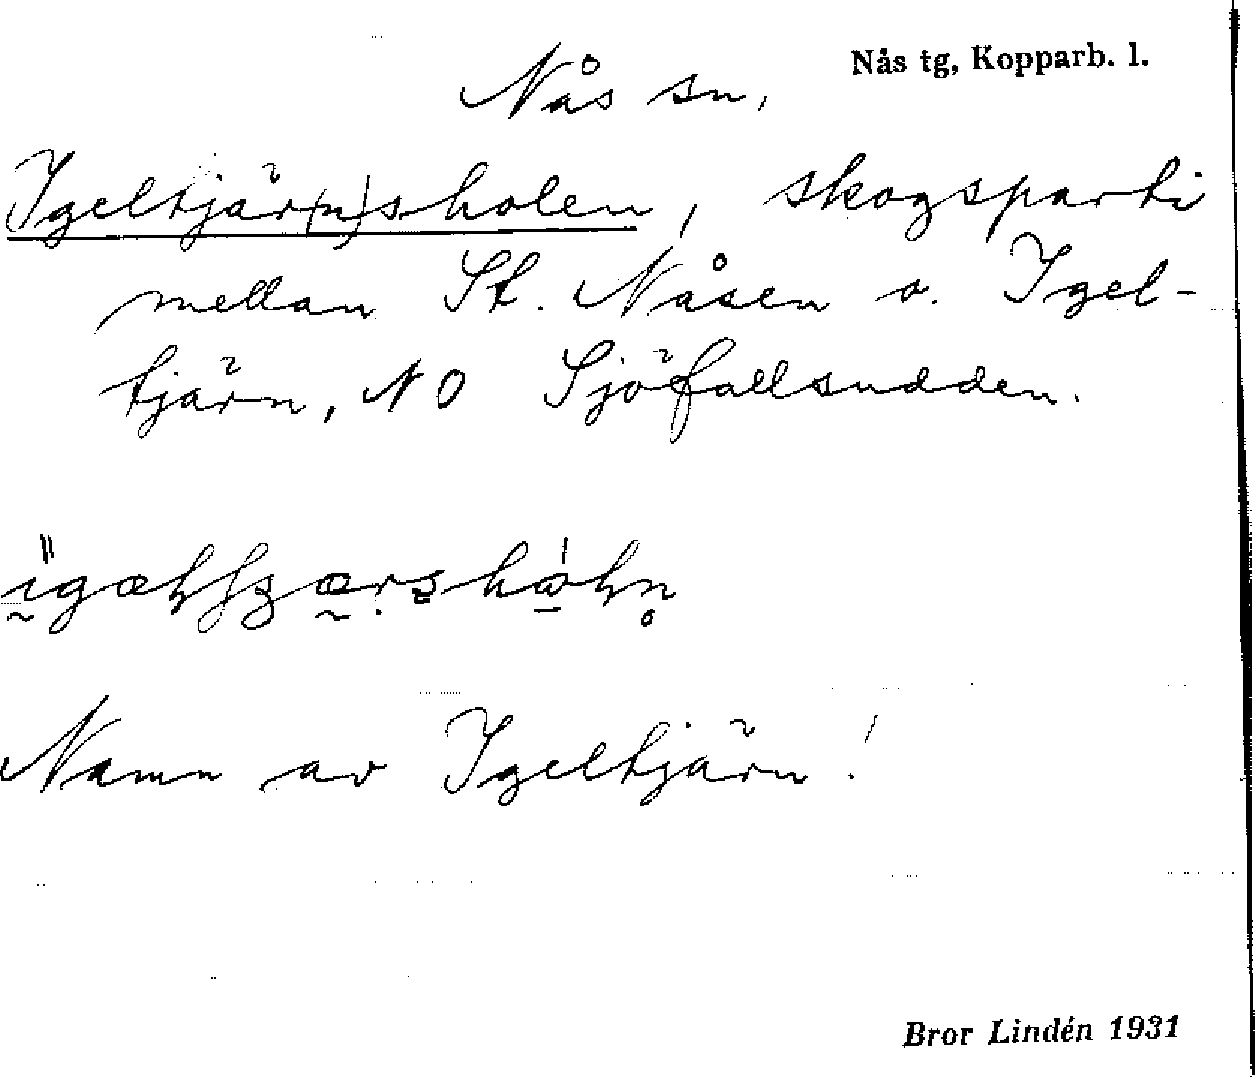 Nås tg, Kopparb. l.
Nås sn,
Igeltjär(n)sholen, skogsparti
mellan St. Nåsen o. Igel-
tjärn, NO Sjöfallsudden.
Namn av Igeltjärn!
Bror Lindén 1931